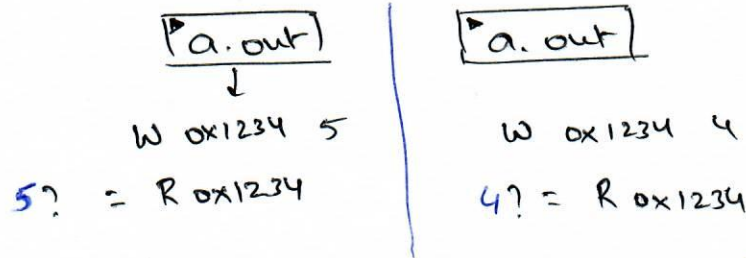 a.out
W 0x1234 5
5? = R 0x1234
a. out
W 0x1234 4
4? = R 0x1234